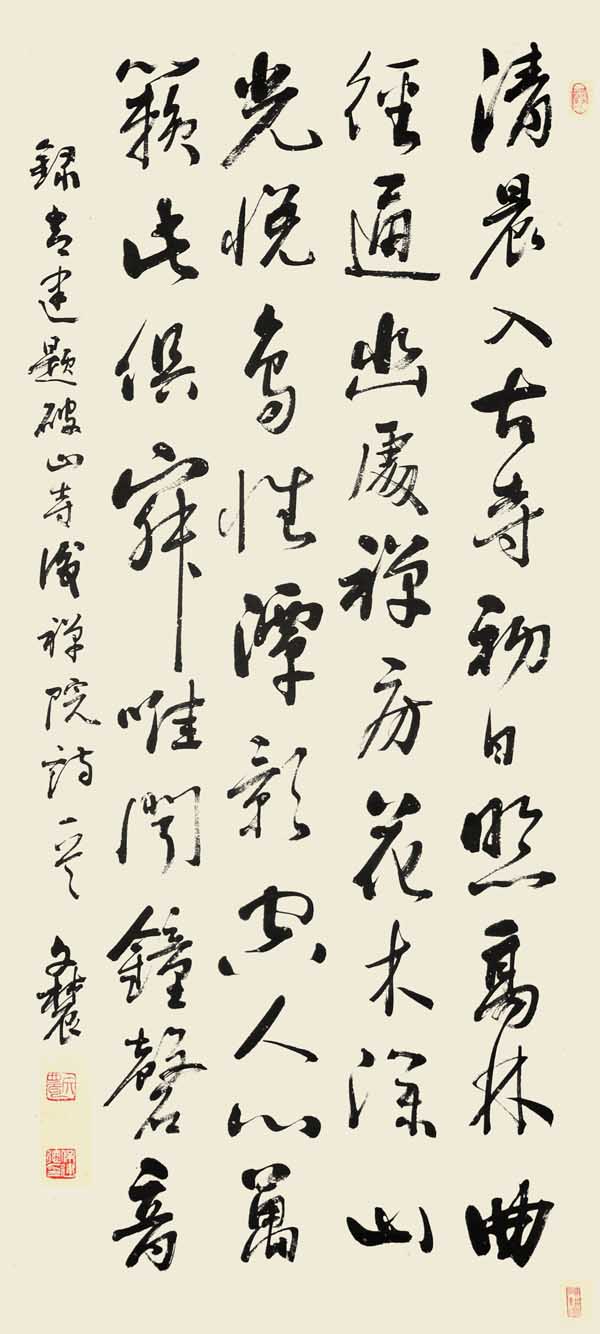 清晨入古寺初日照高林曲
徑通幽處禅房花木深山
光悦鳥性潭影空人心萬
籁此俱寂唯聞鐘磬音
録常建题破山寺後禅院詩一首